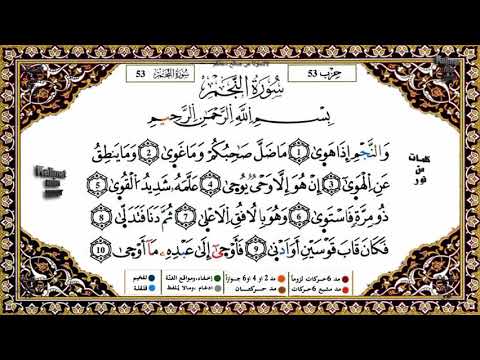 53 سُورَةُ النَّجْمِ
حزب 53
سُورَةُ النَّجْمِ
بِسْمِ اللَّهِ الرَّحْمَٰنِ الرَّحِيمِ
وَالنَّجْمِ إِذَا هَوَىٰ 1 مَا ضَلَّ صَاحِبُكُمْ وَمَا غَوَىٰ 2 وَمَا يَنطِقُ
عَنِ الْهَوَىٰ 3 إِنْ هُوَ إِلَّا وَحْيٌ يُوحَىٰ 4 عَلَّمَهُ شَدِيدُ الْقُوَىٰ 5
ذُو مِرَّةٍ فَاسْتَوَىٰ 6 وَهُوَ بِالْأُفُقِ الْأَعْلَىٰ 7 ثُمَّ دَنَا فَتَدَلَّىٰ 8
فَكَانَ قَابَ قَوْسَيْنِ أَوْ أَدْنَىٰ 9 فَأَوْحَىٰ إِلَىٰ عَبْدِهِ مَا أَوْحَىٰ 10
كلمات
من
نور
مد 6 حركات لزوماً مد 2 أو 4 أو 6 جوازاً إخفاء، ومواقع الغنّة تفخيم
مد مشبع 6 حركات مد حركتان إدغام، وما لا يلفظ قلقلة